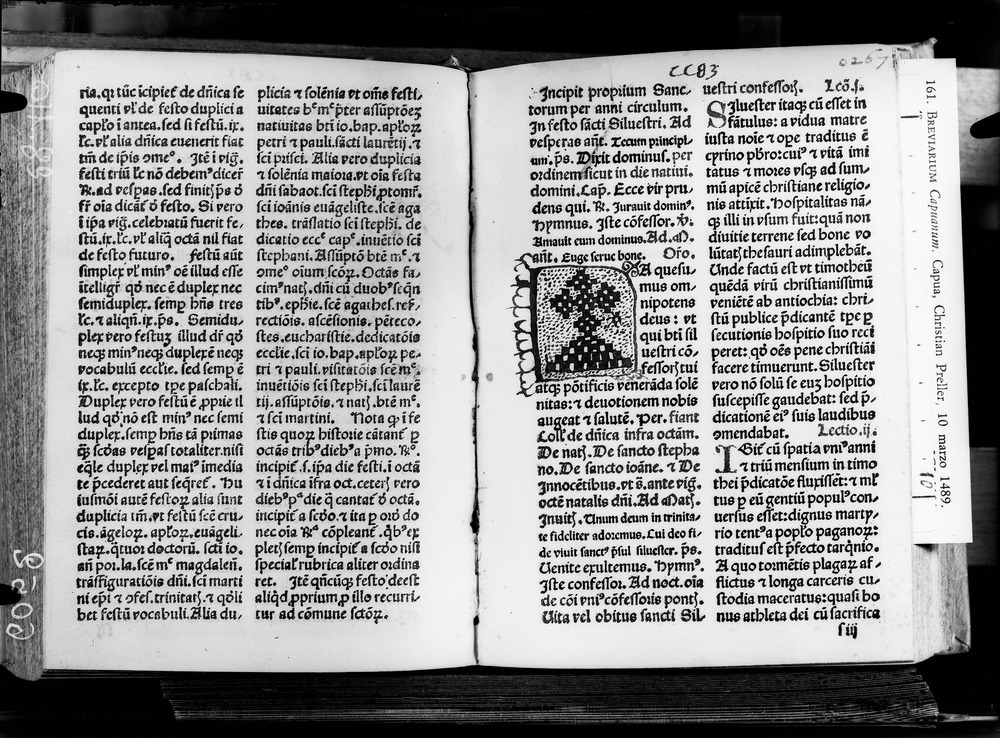 ria.qr tūc īcipieť de dñica se
quenti vł de festo duplici a
capło i antea.sed si festū.ix.
łc.vł alia dñica euenerit fiat
festi triū łc nō debemꝰ dicer̄
fr̄ oīa dicať ð festo. Si vero
i ipa vig.celebratū fuerit fe-
stū.ix.łc.vł aliq̄ octā nil fiat
de festo futuro. Festū aūt
simplex vł minꝰ oē illud esse
ītelligr̄ qð nec ē duplex nec
semiduplex. semp hñs tres
łc.⁊ aliqñ.ix.p̄s. Semidu-
plex vero festuȝ illud dr̄ qð
neqȝ minꝰneqȝ duplexē neqȝ
vocabulū ecclie. sed semp ē
ix.łc. excepto tpe paschali.
Duplex vero festū ē ꝓprie il
lud qð nō est minꝰ nec semi
duplex.semp hñs tā primas
q̄ scdas vesꝑas totaliter.nisi
eq̄le duplex vel maiꝰ īmedia
te p̄cederet aut seq̄reť. Hu
iusmōi autē festoꝝ alia sunt
duplicia tm̄.vt festū scē cru-
cis.āgeloꝝ. apłoꝝ.euāgeli-
staꝝ.q̄tuor doctorū. scti io.
añ por.la.scē mͤ magdaleñ.
trāsfiguratiōis dñi.sci marti
ni ep̄i ⁊ ofes.trinitaťȝ ⁊ qð li
bet festū vocabuli.Alia du-
plicia ⁊ solēnia vt oms̄ festi-
uitates bͤmͤp̄ter assūptōeȝ
natiuitas bti io.bap.apłoꝝ
petri ⁊ pauli.sācti laurētij.⁊
sci prisci. Alia vero duplicia
⁊ solēnia maiora.vt oīa festa
dñi sabaot.sci stephi ꝓtomr̄.
sci ioānis euāgeliste.scē aga
thes. trāslatio sci stephi. de
dicatio eccͤ capͤ.inuētio sci
stephani. Assūptō btē mͤ.⁊
omeͤ oīum scōꝝ. Octās fa-
cimꝰnaťȝ.dñi cū duobꝰseq̄n
tibꝰ. ephie.scē agathes.reſ-
rectiōis. ascēsionis. pēteco-
stes.eucharistie.dedicatōis
ecclie.sci io.bap.apłoꝝ pe-
tri ⁊ pauli.visitatōis scē mͤ.
inuētiōis sci stephi.sci laurē
tij.assūptōis.⁊ natȝ.btē mͤ.
⁊ sci martini. Nota q̄ ī fe
stis quoꝝ historie cātanť p
octās tribꝰ diebꝰa p̄mo. ℟ͦ.
incipiť.s.ipa die festi.ī octā
⁊ ī dñica īfra oct.ceterȝ vero
diebꝰp die q̄ cantať ð octā.
incipiť a scdo.⁊ ita p ord̄ do
nec ℟ͣ cōpleanť. qͥbꝰ ex
pletȝ semp incipiť a scdo nisi
specialr̄ rubrica aliter ordina
ret. Itē qñcūqȝ festo deest
aliqd ꝓprium ꝓ illo recurri-
tur ad cōmune sctōꝝ.
CC83
0267
Incipit proprium Sanc-
torum per anni circulum.
In festo sācti Siluestri. Ad
vesperas añt. Tecum principi-
um.ps. Dixit dominus. per
ordinem sicut in die natiui.
domini.Cap. Ecce vir pru-
dens qui. ℟. Jurauit dominꝰ.
hymnus. Iste cōfessor. ℣:
Amauit eum dominus.Ad.M.
añt. Euge serue bone. Oro.
DA quesu-
mus om-
nipotens
deus : vt
qui bti sil
uestri cō-
fessorȝ tui
atqȝ pōtificis venerāda solē
nitas: ⁊ deuotionem nobis
augeat ⁊ salutē. Per. fiant
Colľ de dñica infra octām.
De natȝ. De sancto stepha
no. De sancto ioāne. ⁊ De
Innocētibus. vt ꝟ. ante vig.
octē natalis dñi. Ad Matȝ.
Inuitȝ. Unum deum in trinita-
te fideliter adoremus. Cui deo fi-
de viuit sanctꝰ p̄sul siluester. ps.
Uenite exultemus. hymnꝰ.
Iste confessor. Ad noct. oīa
de cōi vniꝰ cōfessoris pontȝ.
Uita vel obitus sancti Sil-
uestri confessorȝ. Lcō.j.
SIluester itaqȝ cū esset in
fātulus: a vidua matre
iusta noīe ⁊ ope traditus ē
cyrino pbro:cuiꝰ ⁊ vitā imi
tatus ⁊ mores vsqȝ ad sum-
mū apicē christiane religio-
nis attixit. Hospitalitas nā-
qȝ illi in vsum fuit: quā non
diuitie terrene sed bone vo
lūtatȝ thesauri adimplebāt.
Unde factū est vt timotheū
quēdā virū christianissimū
veniētē ab antiochia: chri-
stū publice p̄dicantē tpe p
secutionis hospitio suo reci
peret: qð oēs pene christiāi
facere timuerunt. Siluester
vero nō solū se euȝ hospitio
suscepisse gaudebat: sed p̄-
dicationē eiꝰ suis laudibus
ꝯmendabat. Lectio.ij.
IGiť cū spatia vniꝰanni
⁊ triū mensium in timo
thei p̄dicatōe fluxisset: ⁊ ml̄
tus p eū gentiū populꝰcon-
uersus esset:dignus marty-
rio tentꝰa poplo paganoꝝ:
traditus est p̄fecto tarqnio.
A quo tormētis plagaꝝ af-
flictus ⁊ longa carceris cu-
stodia maceratus: quasi bo
nus athleta dei cū sacrifica
s iij
161. BREVIARIUM Capuanum. Capua, Christian Preller, 10 marzo 1489.